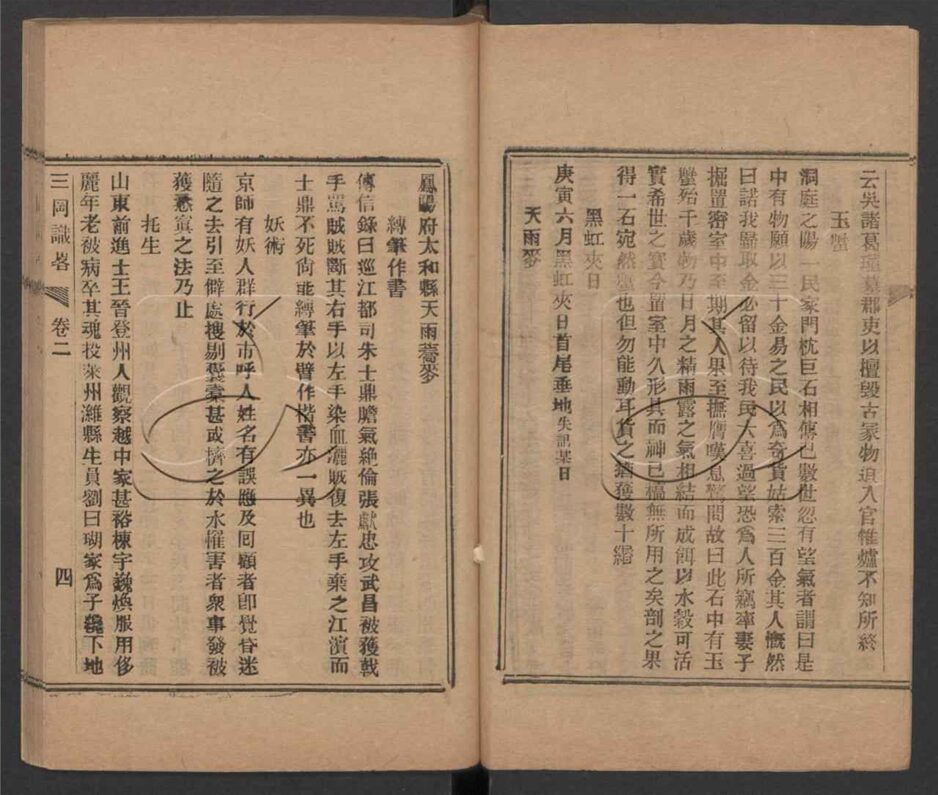 云吳諸葛瑾墓郡吏以擅毀古冢物追入官惟爐不知所終
玉蟹
洞庭之陽一民家門枕巨石相傳已數世忽有望氣者謂曰是
中有物願以三十金易之民以爲奇貨姑索三百金其人慨然
曰諾我歸取金必留以待我民大喜過望恐爲人所竊率妻子
掘置密室中至期其人果至撫膺嘆息驚問故曰此石中有玉
蟹殆千歲物乃日月之精雨露之氣相結而成餌以水穀可活
實希世之寶今置室中久形具而神已槁無所用之矣剖之果
得一石宛然蟹也但勿能動耳貨之猶獲數十緡
黑虹夾日
庚寅六月黑虹夾日首尾垂地失記某日
天雨麥
鳳陽府太和縣天雨蕎麥
縛筆作書
傳信錄曰巡江都司朱士鼎膽氣絶倫張獻忠攻武昌被獲戟
手罵賊賊斷其右手以左手染血灑賊復去左手棄之江濱而
士鼎不死尙能縛筆於臂作楷書亦一異也
妖術
京師有妖人群行於市呼人姓名有誤應及回顧者卽覺昏迷
隨之去引至僻處搜剔囊橐甚或擠之於水罹害者衆事發被
獲悉寘之法乃止
托生
山東前進士王晉登州人觀察越中家甚裕棟宇巍煥服用侈
麗年老被病卒其魂投萊州濰縣生員劉曰瑚家爲子纔下地
三岡識畧
卷二
四